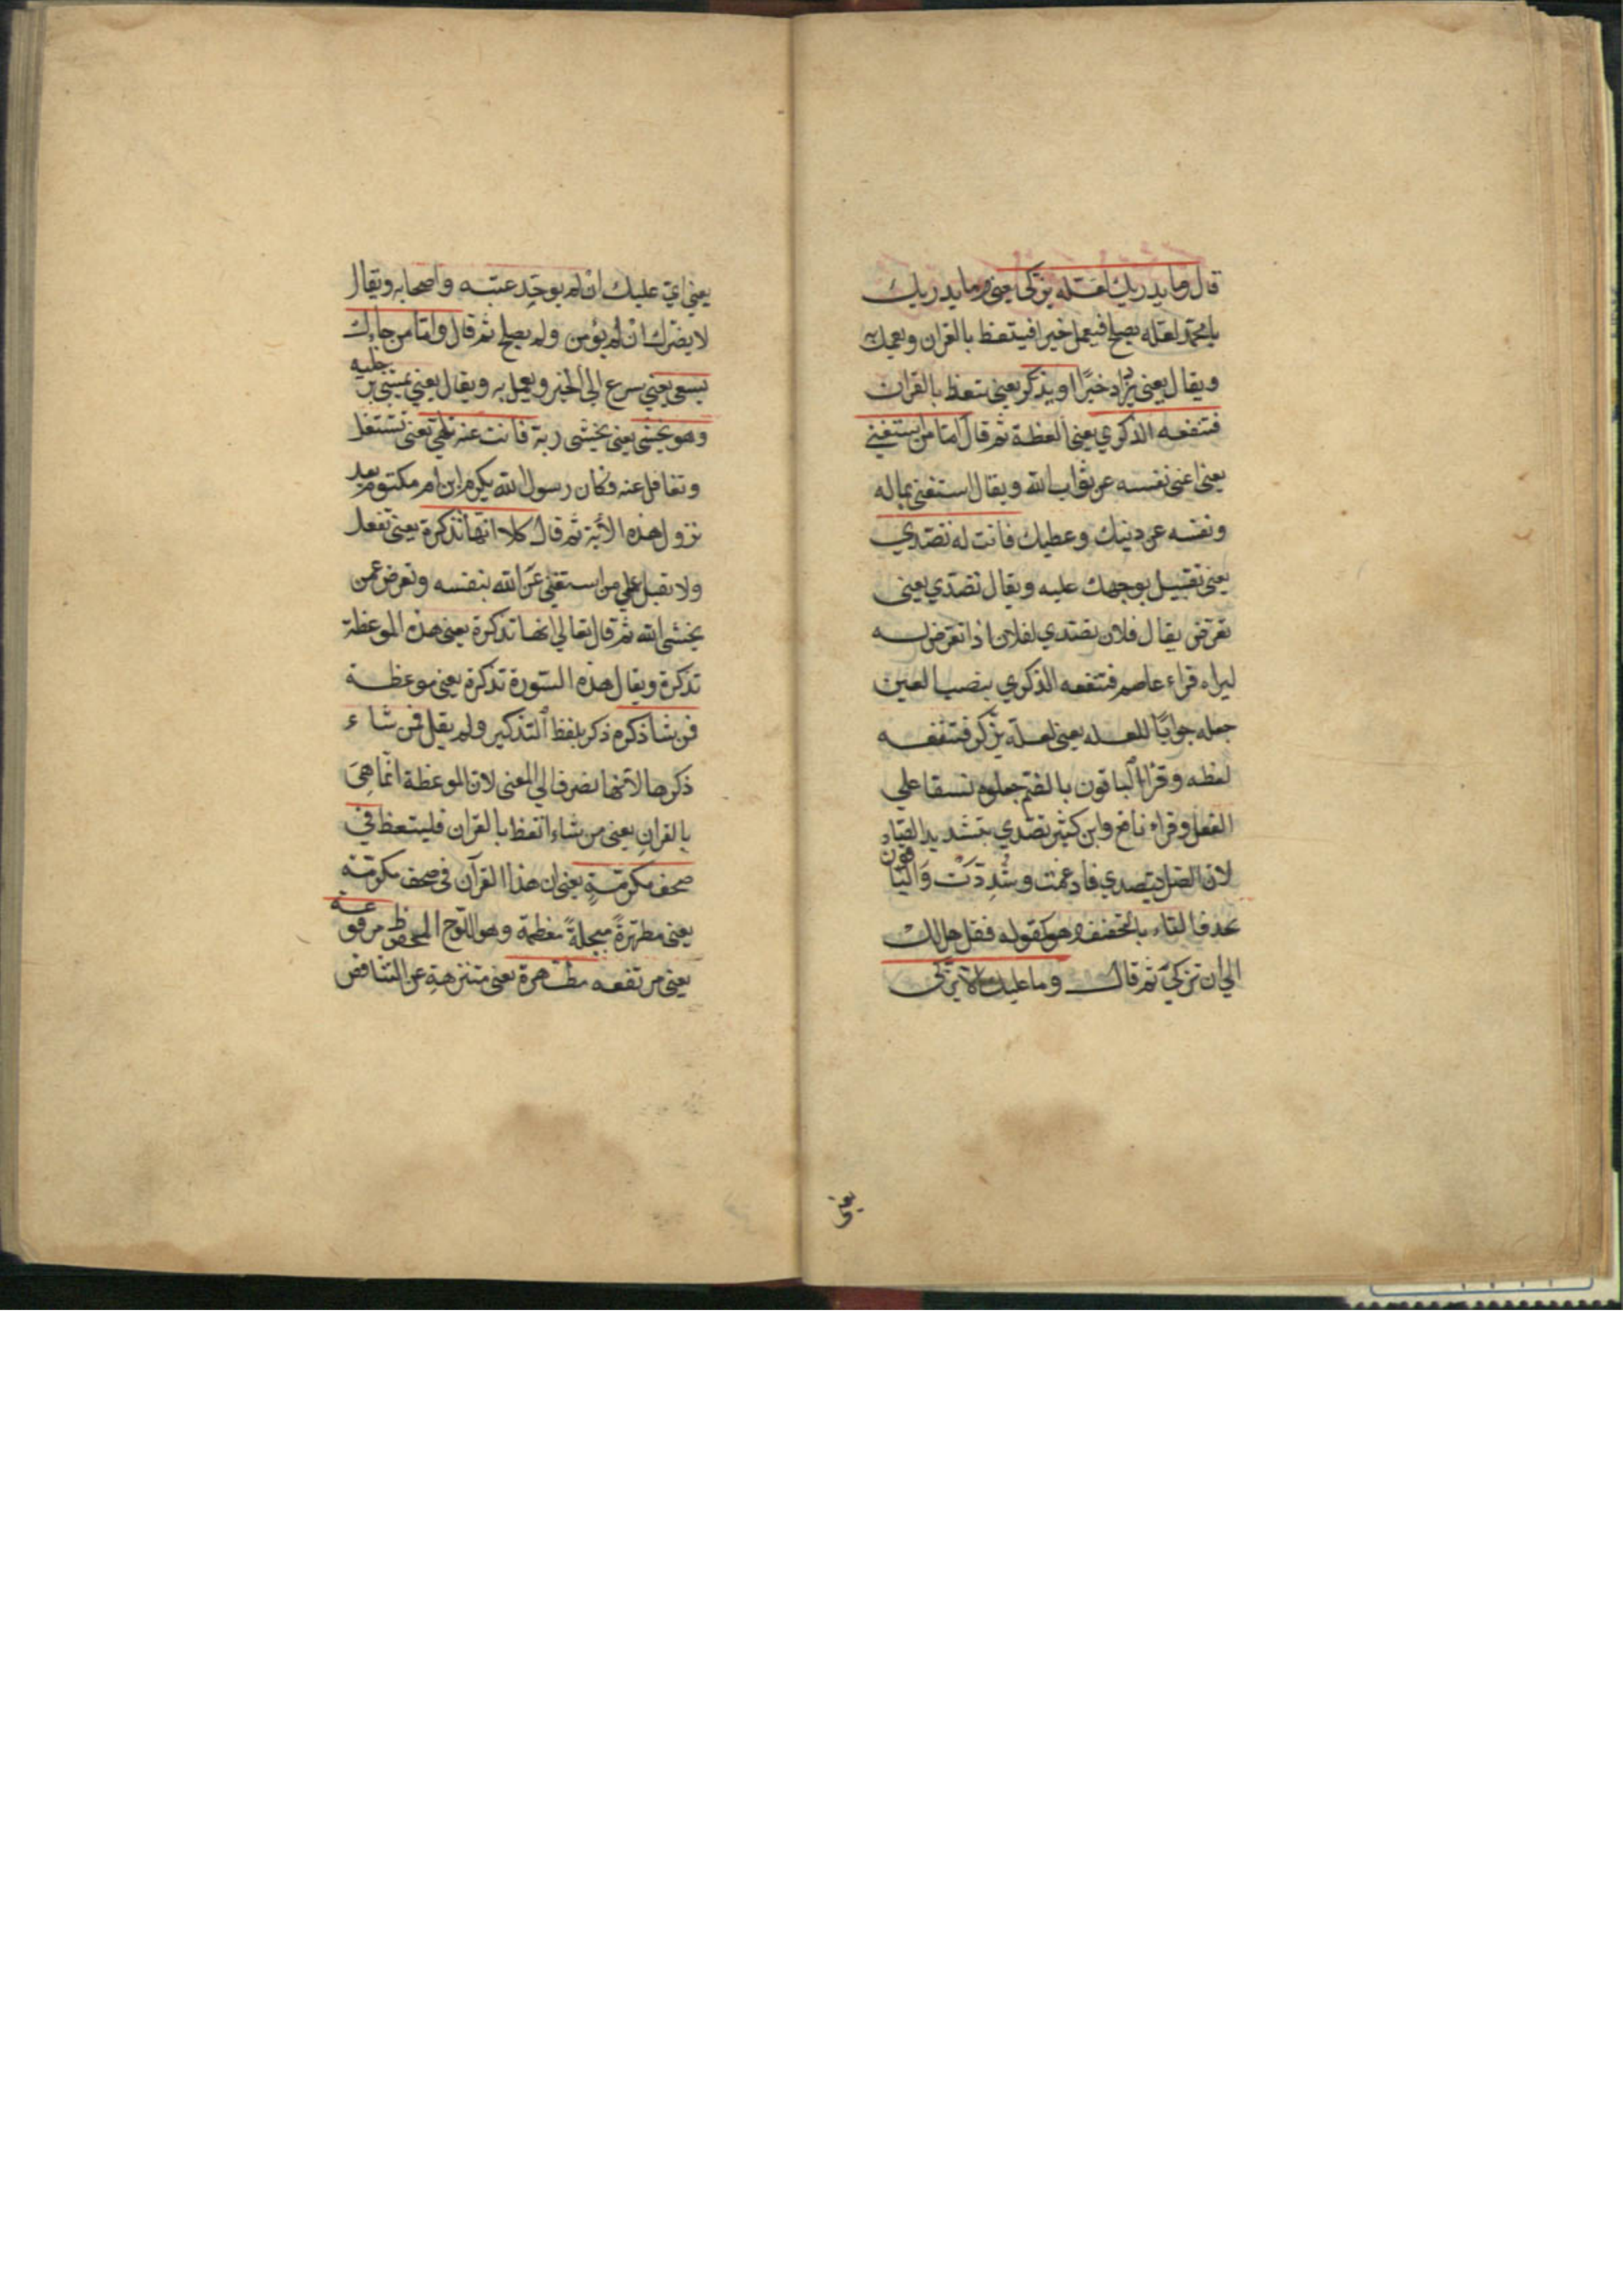 قال وما يدريك لعله يزكى يعني وما يدريك
يا محمد لعله يصلح فيعمل خيرا فيتعظ بالقران ويعمل به
ويقال يعني يزداد خيرًا او يذكر يعني يتعظ بالقران
فتنفعه الذكري يعني العظة ثم قال اما من استغني
يعني اغني نفسه عن ثواب الله ويقال استغني بماله
ونفسه عن دينك وعطيك فانت له تصدي
يعني تقبل بوجهك عليه ويقال تصدي يعني
تعرض يقال فلان تصدي لفلان اذا تعرض له
ليراه قراء عاصم فتنفعه الذكري بنصب العين
جعله جوابًا للعله يعني لعله يزكر فتنفعه
لعظه وقرا الباقون بالضم جعلوه نسقا علي
الفعل وقراء نافع وابن كثير تصدي بتشديد الصاد
لان الاصل يتصدي فادغمت وشددت والباقون
بحذف التاء بالتخفيف وهو كقوله فقل هل لك
الي ان تزكي ثم قال وما عليك الا يزكى
يعني
يعني اي عليك ان لم يوحد عتبه واصحابه ويقال
لا يضرك ان لم يؤمن ولم يصلح ثم قال واما من جاءك
يسعى يعني يسرع الي الخير ويعمل به ويقال يعني يمشي برجليه
وهو يخشى يعني يخشى ربه فانت عنه تلهي يعني تشتغل
وتغافل عنه فكان رسول الله يكرم ابن ام مكتوم بعد
نزول هذه الاية ثم قال كلا انها تذكرة يعني تفعل
ولا تقبل علي من استغني عن الله بنفسه وتعرض عمن
يخشى الله ثم قال تعالي انها تذكرة يعني هذه الموعظة
تذكرة ويقال هذه السورة تذكرة يعني موعظة
فمن شا ذكره ذكر بلفظ التذكير ولم يقل فمن شاء
ذكرها لانها نصرف الي المعنى لان الموعظة انما هي
بالقران يعني من شاء اتعظ بالقران فليتعظ في
صحف مكرمة يعني ان هذا القرآن في صحف مكرمة
يعني مطهرة مبجلة معظمة وهو اللوح المحفوظ مرفوعة
يعني مرتفعه مطهرة يعني منزهة عن التناقض